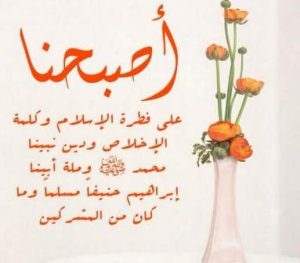 أصبحنا
على فطرة الإسلام وكلمة
الإخلاص ودين نبينا
محمد ﷺ وملة أبينا
إبراهيم حنيفا مسلما وما
كان من المشركين